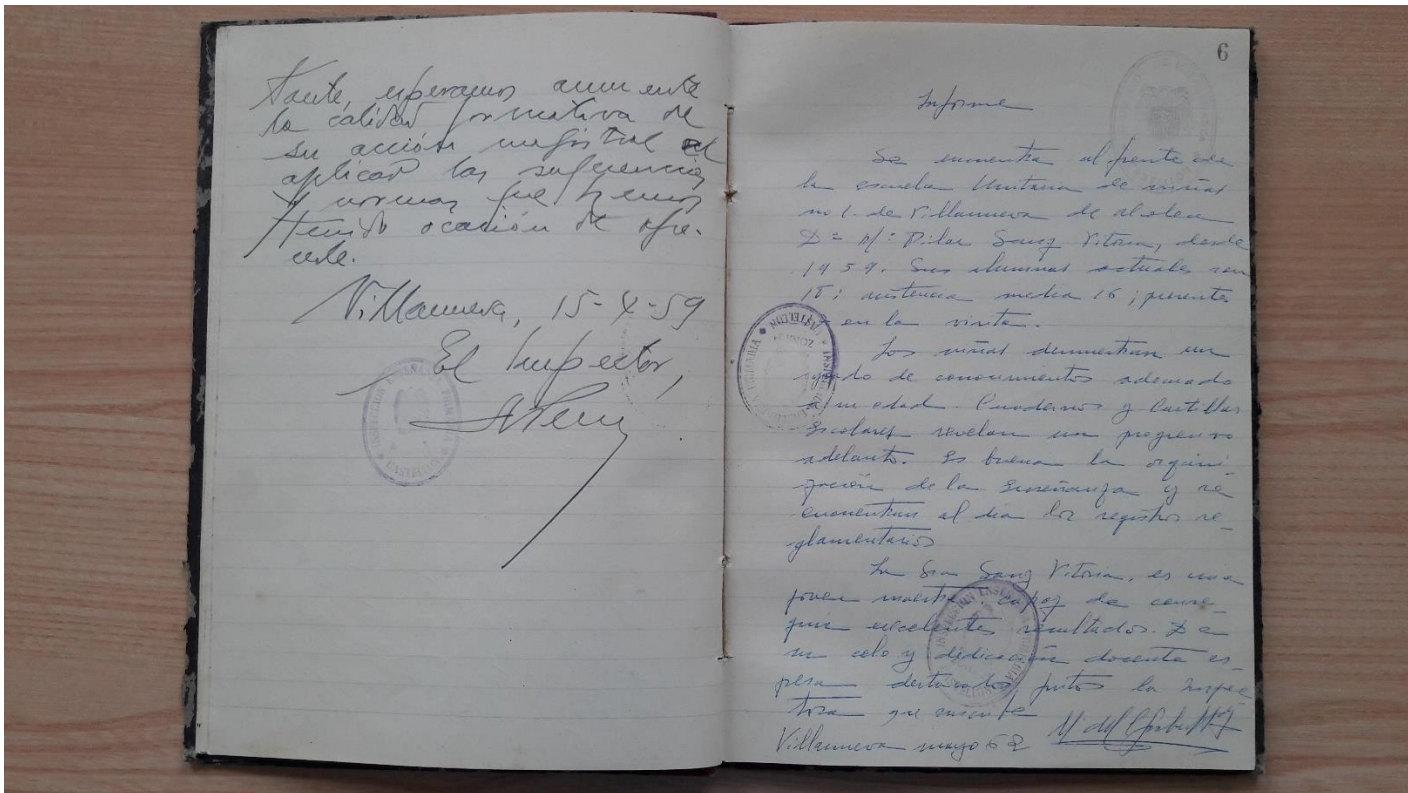 tante, esperamos aumente
la calidad formativa de
su acción magistral al
aplicar las sugerencias
y normas que hemos
tenido ocasión de ofre-
cerle.
Villanueva, 15-X-59
El Inspector,
INSPECCION ENSEÑANZA PRIMARIA
CASTELLON
6
Informe
Se encuentra al frente de
la escuela Unitaria de niñas
no 1. de Villanueva de Alcolea
Dª Mª Pilar Sanz Vitoria, desde
1959. Sus alumnas actuales son
18; asistencia media 16; presentes
en la visita.
Las niñas demuestran un
grado de conocimientos adecuado
a su edad. Cuadernos y Cartillas
Escolares revelan un progresivo
adelanto. Es buena la organi-
zación de la Enseñanza y se
encuentran al dia los registros re-
glamentarios
La Sra Sanz Vitoria, es una
joven maestra capaz de conse-
guir excelentes resultados. De
su celo y dedicación docente es-
pera destacados frutos la Inspec
tora que suscribe
Villanueva mayo 62